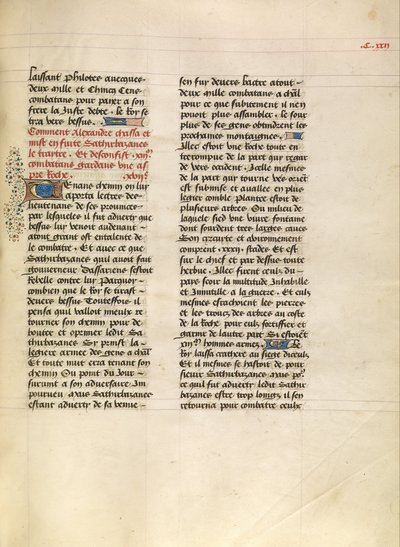 .C. xxii
laissant philotes avecques
deux mille et Chincq Cens
combatans pour payer a son
frere la Juste debte. le Roy se
tira vers bessus.
Comment Alexandre chassa et
mist en fuite Sathribarzanes
le tirant. Et desconfist
combatans gardans une as
pre Roche. .xvii.
Tenans chemin on luy
aporta lettres des
lieutenans de ses prouinces
par lesqueles il fut aduerty que
bessus luy venoit audeuant
atout grant ost entalente de
le combatre. Et avec ce que
Sathribarzanes quil auoit fait
gouuerneur Dassariens sestoit
Rebelle contre luy Parquoy
combien que le Roy se tirast
deuers bessus Toutesfois il
pensa quil valloit mieulx re
tourner son chemin pour de
bouter et oprimer ledit Sa
thribarzanes Sy prinst la
legiere armee des gens a chal
Et toute nuit erra tenant son
chemin Ou point du Jour
suruint a son aduersaire Im
pourueu Mais Sathribarzanes
estant aduerty de sa venue
sen fuy deuers bactre atout
deux mille combatans a chal
pour ce que subitement il nen
pouoit plus assambler. le sour
plus de ses gens obtindrent les
prochaines montaignes.
Illec estoit une Roche toute en
terrompue de la part qui regar
de vers occident. Jcelle mesmes
de la part qui tourne vers orient
est submise et auallee en plus
legiere comble Plantee estoit de
plusieurs arbres On milieu de
laquele sied une viue fontaine
dont sourdent tres larges eaues
Son circuite et auironnement
comprent .xxxii. stades Et est
sur le chief et par dessus toute
herbue. Illec firent ceulx du
pays seoir la multitude Inhabille
et Inutille a la guerre. Et eulx
mesmes esrachoient les pierres
et les troncz des arbres au coste
de la Roche pour eulx fortiffier et
garnir de lautre part Sy estoient
hommes armez. Le
Roy laissa crathere au siege diceulx
Et il mesmes se hastoit de pour
sieuir Sathribarzanes Mais po
ce quil fut aduerty ledit Sathri
barzanes estre trop loingz. il sen
retourna pour combatre ceulx